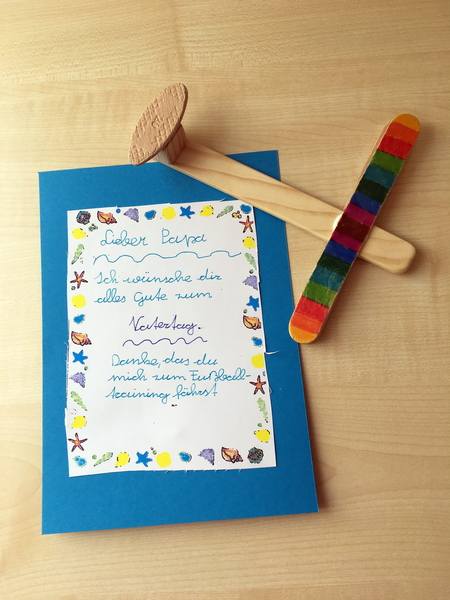 Lieber Papa
Ich wünsche dir
alles Gute zum
Vatertag.
Danke, das du
mich zum Fußball-
training fährst